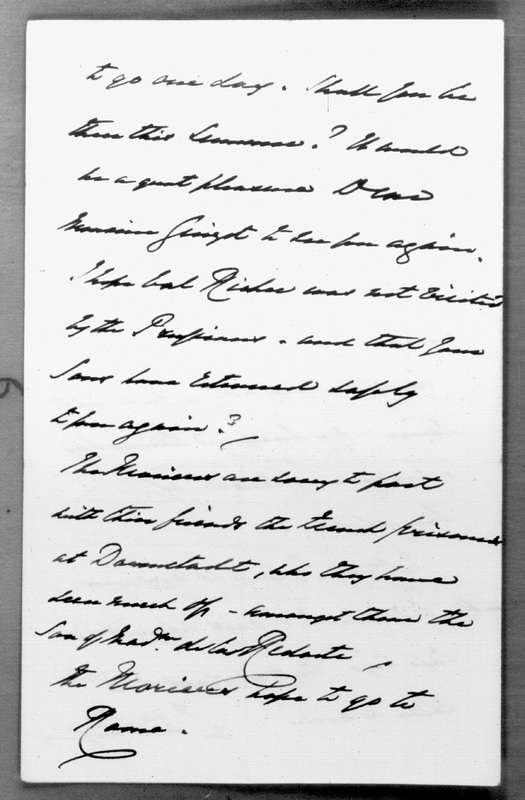 to go one day. Shall you be
there this Summer? It would
be a great pleasure Dear
Monsieur Guizot to see you again.
I hope Val Richer was not visited
by the Prussians - and that your
Sons have returned safely
to you again?
The Moriers are sorry to part
with their friends the French prisoners
at Darmstadt, who they have
seen much of - amongst them the
Son of Mad^me de las Redorte,
the Moriers hope to go to
Rome.